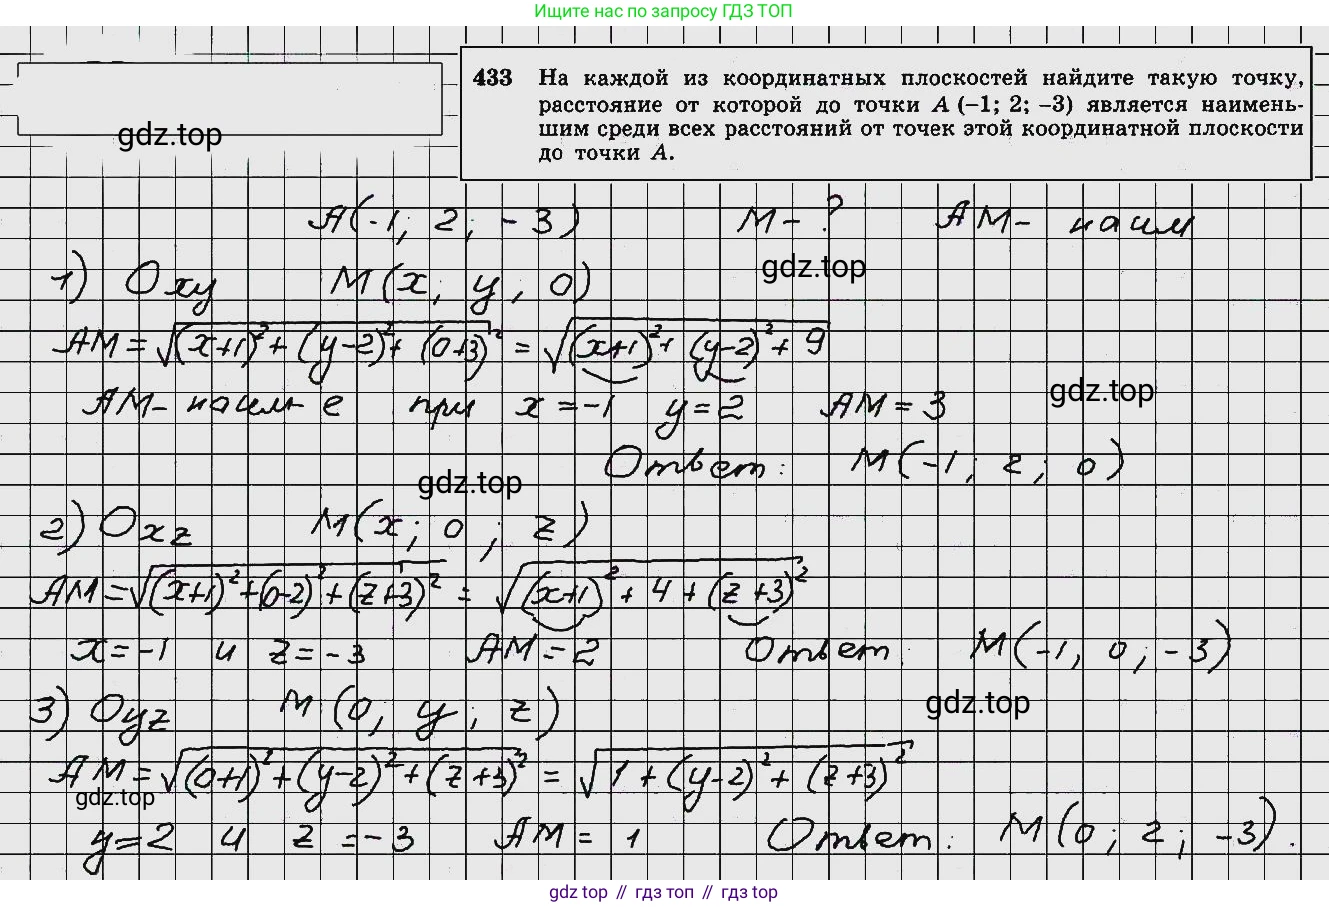 Ищите нас по запросу ГДЗ ТОП
433 На каждой из координатных плоскостей найдите такую точку,
расстояние от которой до точки A (–1; 2; –3) является наимень-
шим среди всех расстояний от точек этой координатной плоскости
до точки A.
gdz.top
A(-1; 2; -3) M - ? AM - наим
gdz.top
1) Oxy M(x; y; 0)
AM = √((x+1)² + (y-2)² + (0+3)²) = √((x+1)² + (y-2)² + 9)
gdz.top
AM - наим-е при x = -1 y = 2 AM = 3
Ответ: M(-1; 2; 0)
gdz.top
2) Oxz M(x; 0; z)
AM = √((x+1)² + (0-2)² + (z+3)²) = √((x+1)² + 4 + (z+3)²)
x = -1 и z = -3 AM = 2 Ответ: M(-1, 0; -3)
3) Oyz M(0; y; z)
gdz.top
AM = √((0+1)² + (y-2)² + (z+3)²) = √(1 + (y-2)² + (z+3)²)
gdz.top
y = 2 и z = -3 AM = 1 Ответ: M(0; 2; -3).
gdz top // гдз топ // gdz top